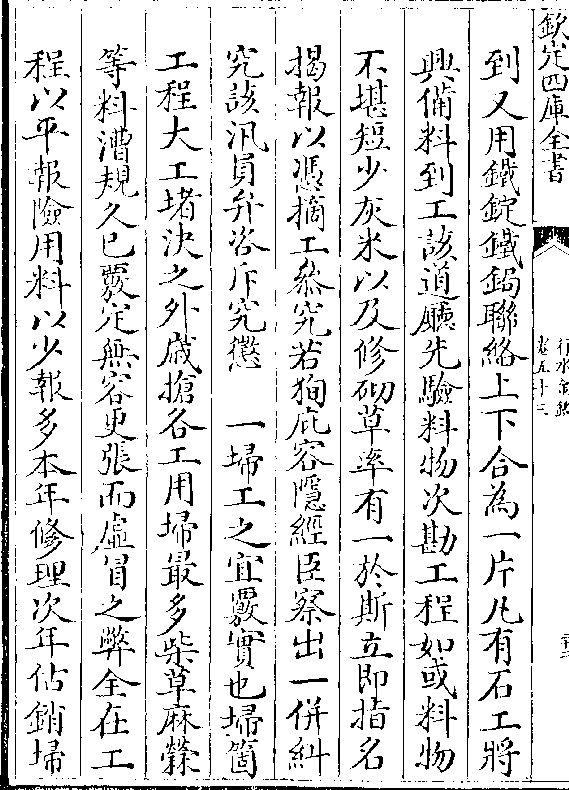 欽定四庫全書
行水金鑑
卷五十三
到又用鐵錠鐵鋦聯絡上下合為一片凡有石工將
興備料到工該道廳先驗料物次勘工程如或料物
不堪短少灰米以及修砌草率有一於斯立即指名
揭報以憑摘工叅究若狥庇容隱經臣察出一併糾
究該汛員弁咨斥究懲　一埽工之宜覈實也埽箇
工程大工堵決之外歲搶各工用埽最多柴草麻檾
等料漕規久已覈定無容更張而虛冒之弊全在工
程以平報險用料以少報多本年修理次年佔銷埽